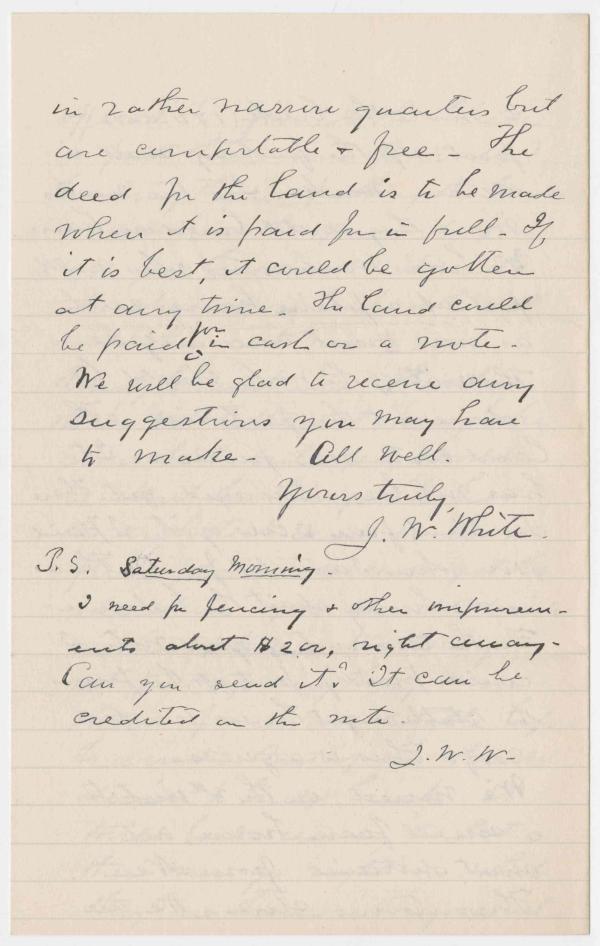 in rather narrow quarters but
are comfortable + free - The
deed for the land is to be made
when it is paid for in full - If
it is best, it could be gotten
at any time - The land could
be paid for in cash or a note -
We will be glad to receive any
suggestions you may have
to make - All well.
Yours truly,
J. W. White.
P.S. Saturday Morning.
I need for fencing + other improvem-
ents about $200, right away -
Can you send it? It can be
credited on the note.
J. W. W-